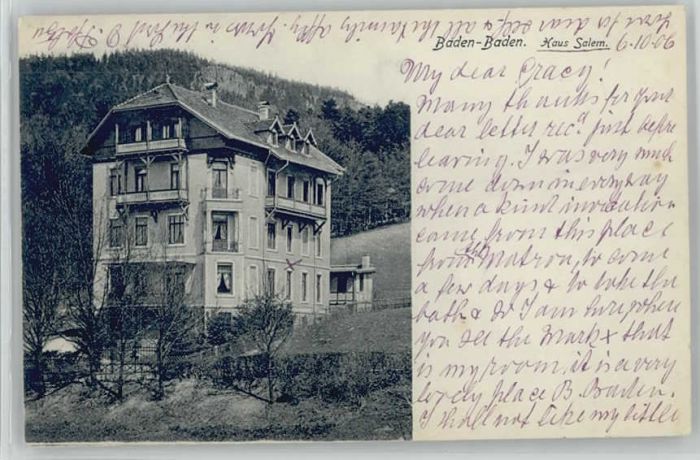 Baden-Baden. Haus Salem.
6-10-06
My dear Gracy!
Many thanks for your
dear letter rec'd just before
leaving. I was very much
come down in every way
when a kind invitation
came from this place
from the Matron, to come
a few days & to take the
bath & so I am here, where
you see the Mark x that
is my room it is a very
lovely place B. Baden.
I shall not like my little
love to dear & all the family